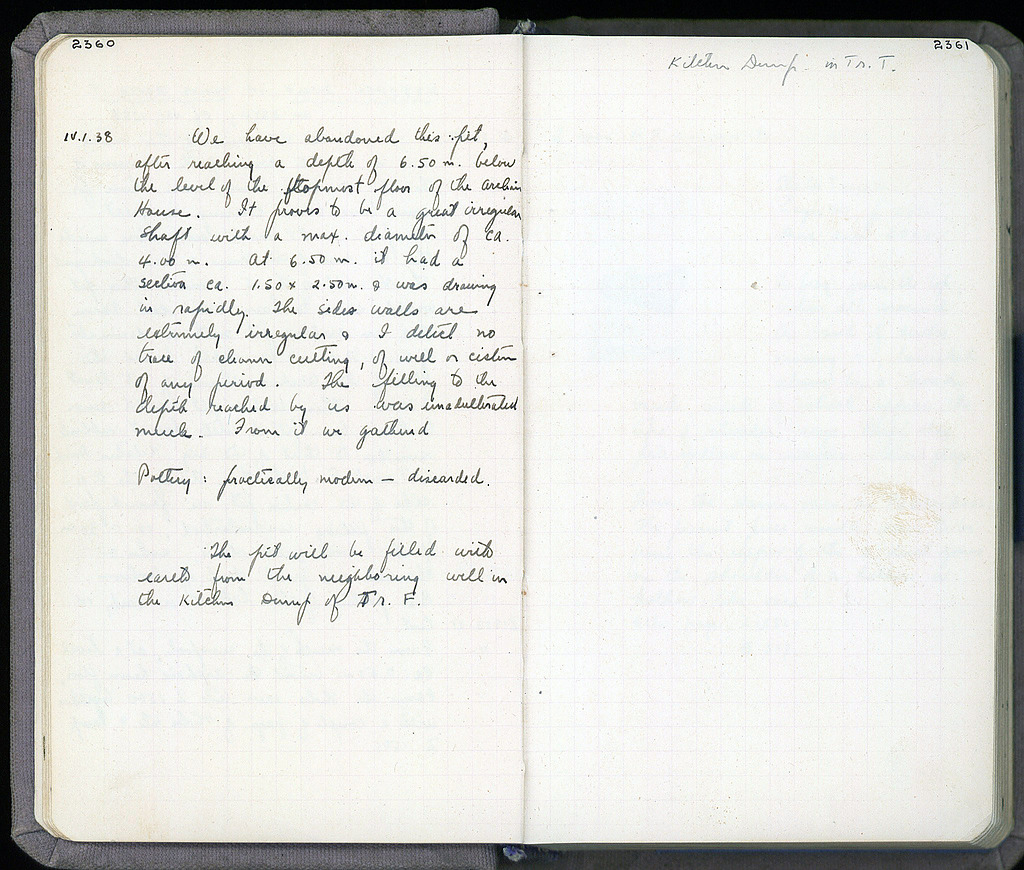 2360
IV.1.38 We have abandoned this pit,
after reaching a depth of 6.50 m. below
the level of the topmost floor of the archaic
House. It proves to be a great irregular
shaft with a max. diameter of ca.
4.00 m. At 6.50 m. it had a
section ca. 1.50 x 2.50 m. & was drawing
in rapidly. The side walls are
extremely irregular & I detect no
trace of clean cutting, of well or cistern
of any period. The filling to the
depth reached by us was unadulterated
muck. From it we gathered
Pottery: practically modern — discarded.
The pit will be filled with
earth from the neighboring well in
the Kitchen Dump of Tr. F.
2361
Kitchen Dump in Tr. T.